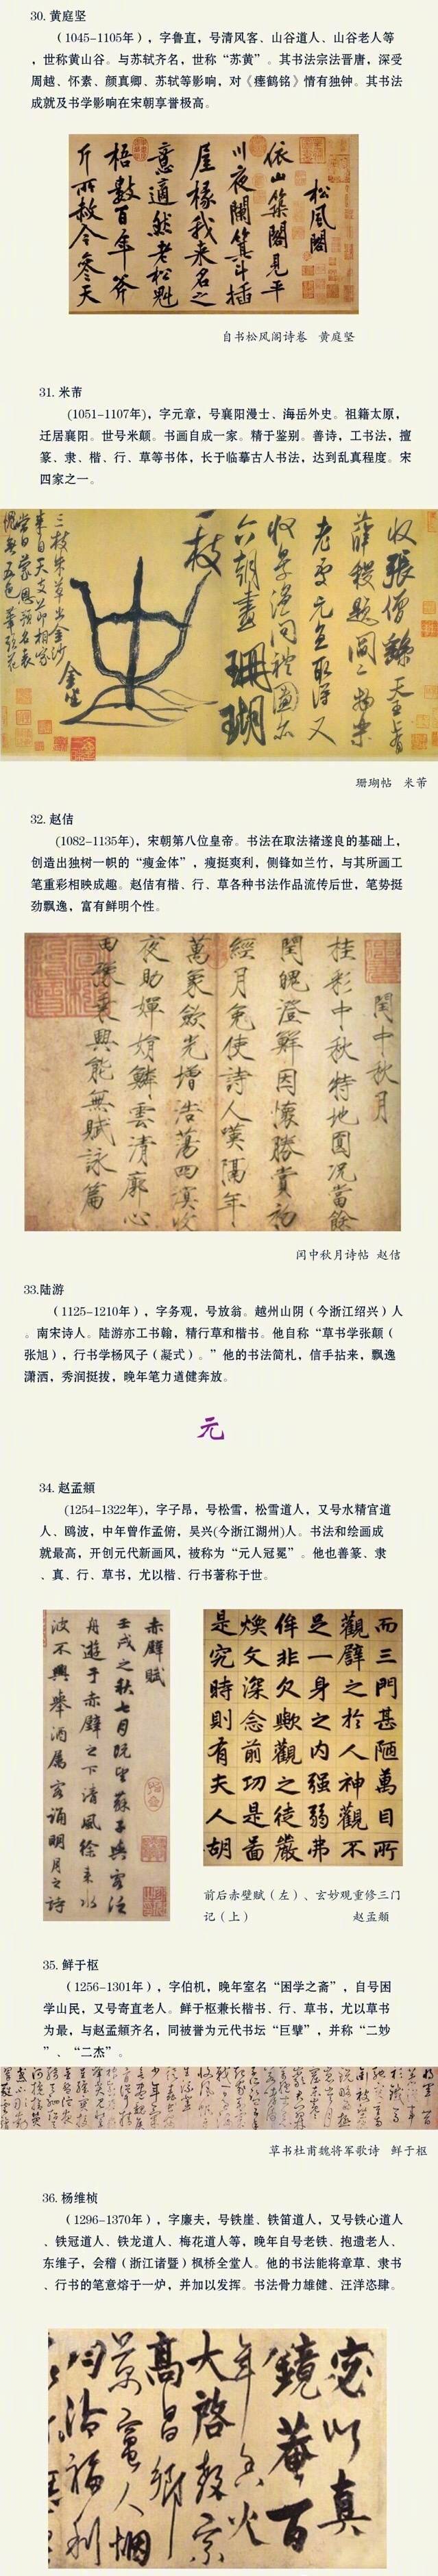 30. 黄庭坚
（1045-1105年），字鲁直，号清风客、山谷道人、山谷老人等
，世称黄山谷。与苏轼齐名，世称“苏黄”。其书法宗法晋唐，深受
周越、怀素、颜真卿、苏轼等影响，对《瘗鹤铭》情有独钟。其书法
成就及书学影响在宋朝享誉极高。
松風閣
依山築閣見平
川夜闌箕斗插
屋椽我来名之
意適然老松魁
梧數百年斧
斤所赦今參天
自书松风阁诗卷 黄庭坚
31. 米芾
（1051-1107年），字元章，号襄阳漫士、海岳外史。祖籍太原，
迁居襄阳。世号米颠。书画自成一家。精于鉴别。善诗，工书法，擅
篆、隶、楷、行、草等书体，长于临摹古人书法，达到乱真程度。宋
四家之一。
收張僧繇天王上有
薛稷題閻二物樂
老處元直取得又
收景温問禮圖亦
六朝畫珊瑚
一枝
三枝朱草出金沙
来自天支節相家
當日蒙恩預名表
愧無五色筆頭花
金坐
珊瑚帖 米芾
32. 赵佶
（1082-1135年），宋朝第八位皇帝。书法在取法褚遂良的基础上，
创造出独树一帜的“瘦金体”，瘦挺爽利，侧锋如兰竹，与其所画工
笔重彩相映成趣。赵佶有楷、行、草各种书法作品流传后世，笔势挺
劲飘逸，富有鲜明个性。
閏中秋月
桂彩中秋特地圓况當餘
閏魄澄鮮因懷勝賞初
經月免使詩人嘆隔年
萬象歛光增浩蕩四溟收
夜助嬋娟鱗雲清廓心
田豫乘興能無賦詠篇
闰中秋月诗帖 赵佶
33.陆游
（1125-1210年），字务观，号放翁。越州山阴（今浙江绍兴）人
。南宋诗人。陆游亦工书翰，精行草和楷书。他自称“草书学张颠（
张旭），行书学杨风子（凝式）。”他的书法简札，信手拈来，飘逸
潇洒，秀润挺拔，晚年笔力遒健奔放。
元
34. 赵孟頫
（1254-1322年），字子昂，号松雪，松雪道人，又号水精宫道
人、鸥波，中年曾作孟俯，吴兴（今浙江湖州）人。书法和绘画成
就最高，开创元代新画风，被称为“元人冠冕”。他也善篆、隶
、真、行、草书，尤以楷、行书著称于世。
赤壁賦
壬戌之秋七月既望蘇子與客泛
舟遊于赤壁之下清風徐来水
波不興舉酒屬客誦明月之詩
而三門甚陋萬目所
觀壁之於人神觀不
足一身之内强弱弗
侔非欠歟觀之徒嚴
煥文深念前功是啚
是究時則有夫人胡
前后赤壁赋（左）、玄妙观重修三门
记（上） 赵孟頫
35. 鲜于枢
（1256-1301年），字伯机，晚年室名“困学之斋”，自号困
学山民，又号寄直老人。鲜于枢兼长楷书、行、草书，尤以草书
为最，与赵孟頫齐名，同被誉为元代书坛“巨擘”，并称“二妙
”、“二杰”。
草书杜甫魏将军歌诗 鲜于枢
36. 杨维桢
（1296-1370年），字廉夫，号铁崖、铁笛道人，又号铁心道人
、铁冠道人、铁龙道人、梅花道人等，晚年自号老铁、抱遗老人、
东维子，会稽（浙江诸暨）枫桥全堂人。他的书法能将章草、隶书
、行书的笔意熔于一炉，并加以发挥。书法骨力雄健、汪洋恣肆。
鏡菴百
大啓教宗
高昌鄉